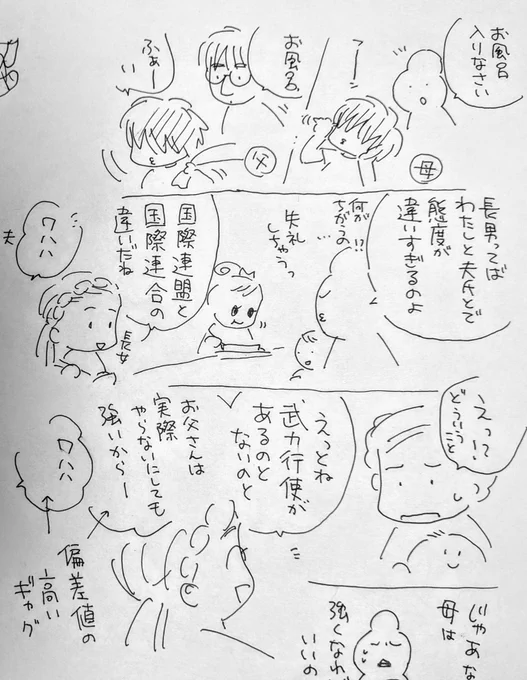 お風呂
入りなさい
母
お風呂
ふぁー
い
父
長男ってば
わたしと夫氏とで
態度が
違いすぎるのよ
何が
ちがうの
!?
…
失礼
しちゃうっ
国際連盟と
国際連合の
違いだね
長女
ワハハ
夫
えっ!?
どういうこと
えっとね
武力行使が
あるのと
ないのと
お父さんは
実際
やらないにしても
強いからー
ワハハ
偏差値の
高い
ギャグ
じゃあな
母は
強くなれば
いいの